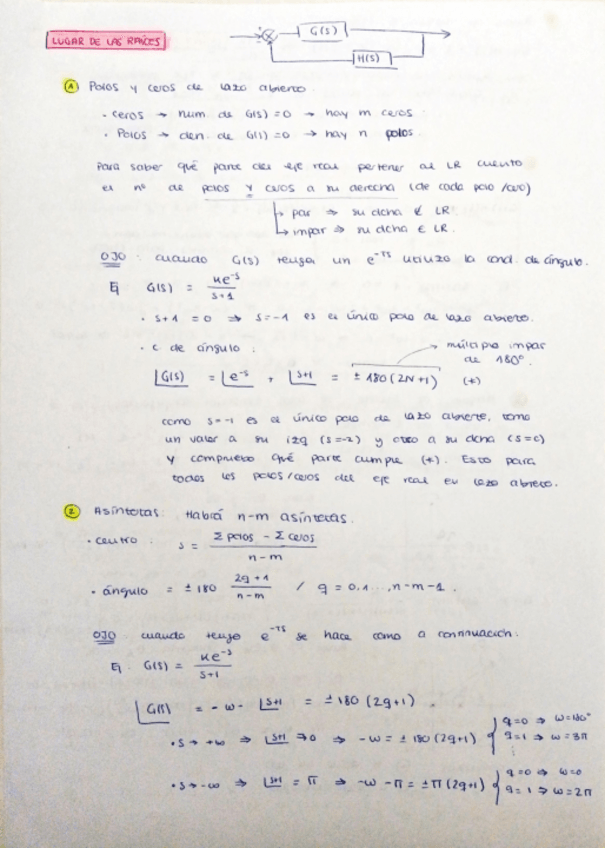 LUGAR DE LAS RAÍCES
G(s)
H(s)
1 Polos y ceros de lazo abierto
• ceros → num de G(s) = 0 → hay m ceros
• Polos → den. de G(s) = 0 → hay n polos.
Para saber qué parte del eje real pertenece al LR cuento
el nº de polos y ceros a su derecha (de cada polo/cero)
↳ par ⇒ su dcha ∉ LR
↳ impar ⇒ su dcha ∈ LR.
OJO: cuando G(s) tenga un e^-Ts utilizo la cond. de ángulo.
Ej G(s) = Ke^-s / s+1
• s+1 = 0 ⇒ s=-1 es el único polo de lazo abierto.
• c de ángulo:
múltiplo impar
de 180º.
∠G(s) = ∠e^-s + ∠s+1 = ± 180 (2N+1) (*)
como s=-1 es el único polo de lazo abierto, tomo
un valor a su izq (s=-2) y otro a su dcha (s=0)
y compruebo qué parte cumple (*). Esto para
todos los polos/ceros del eje real en lazo abierto.
2 Asíntotas: Habrá n-m asíntotas.
• centro: s = Σ polos - Σ ceros / n-m
• ángulo = ± 180 2q+1 / n-m / q = 0,1...,n-m-1.
OJO cuando tengo e^-Ts se hace como a continuación.
Ej. G(s) = Ke^-s / s+1
∠G(s) = -w- ∠s+1 = ±180 (2q+1).
• s→ +∞ ⇒ ∠s+1 ⇒ 0 ⇒ -w = ± 180 (2q+1) { q=0 ⇒ w=180º
q=1 ⇒ w=3π
• s→ -∞ ⇒ ∠s+1 = π ⇒ -w-π = ±π (2q+1) { q=0 ⇒ w=0
q=1 ⇒ w=2π